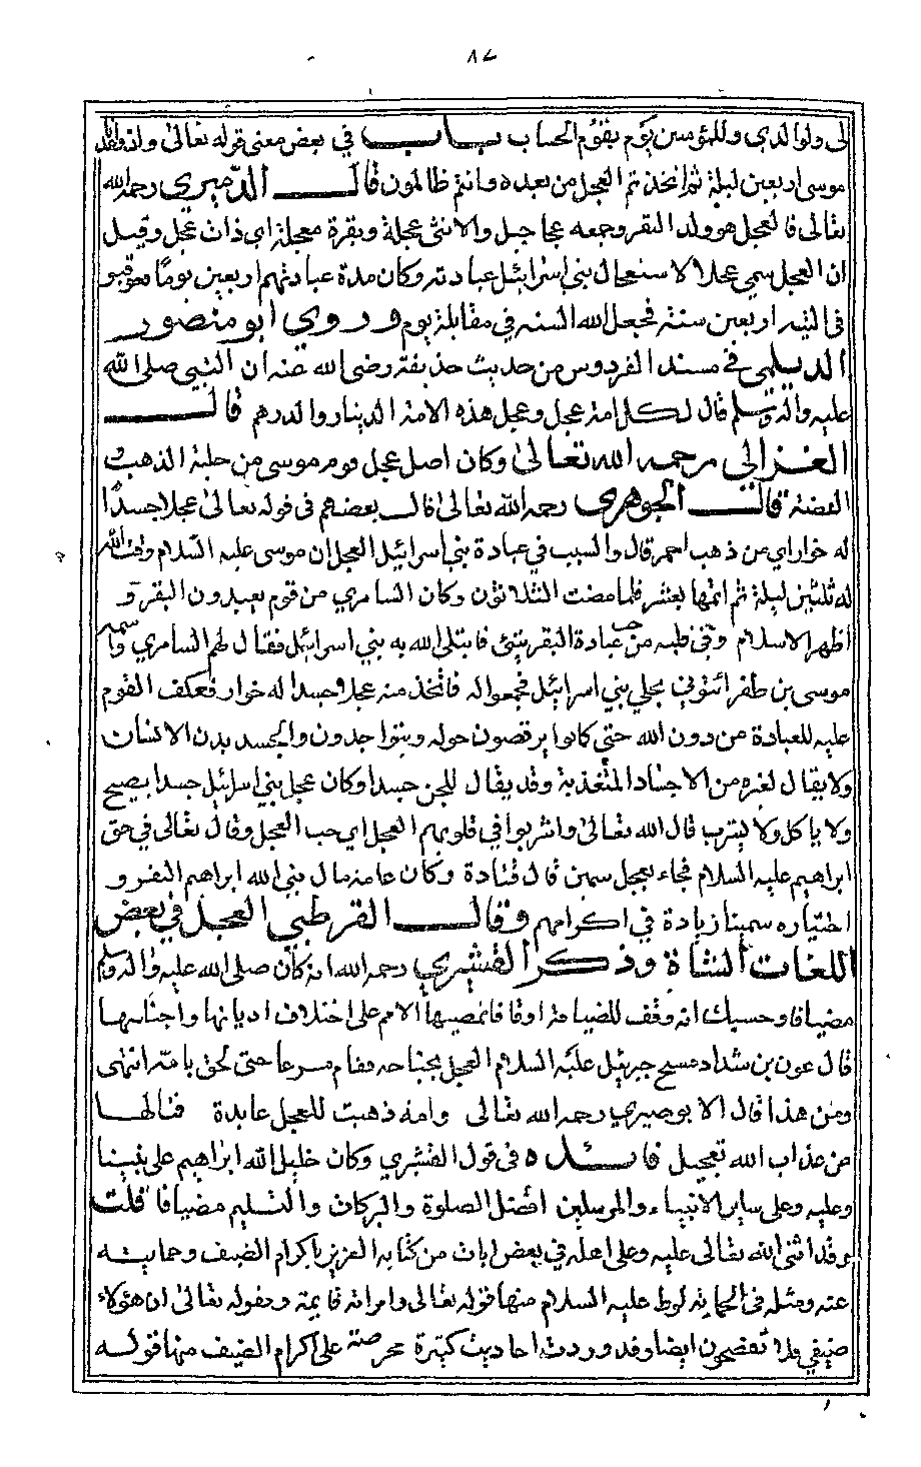 ٨٧
لى ولوالدى وللمؤمنين يوم يقوم الحساب باب في بعض معنى قوله تعالى واذ واعدنا
موسى اربعين ليلة ثم اتخذتم العجل من بعده وانتم ظالمون قال الدميري رحمه الله
تعالى فالعجل هو ولد البقر وجمعه عجاجيل والانثى عجلة وبقرة معجلة اى ذات عجل وقيل
ان العجل سمي عجلا لاستعجال بني اسرائيل عبادته وكان مدة عبادتهم اربعين يوما فعوقبو
فى التيه اربعين سنة فجعل الله السنه في مقابلة يوم وروي ابو منصور
الديلمي في مسند الفردوس من حديث حذيفة رضى الله عنه ان النبي صلى الله
عليه واله وسلم قال لكل امة عجل وعجل هذه الامة الدينار والدرهم قال
الغزالي رحمه الله تعالى وكان اصل عجل قوم موسى من حلية الذهب و
الفضة قال الجوهري رحمه الله تعالى قال بعضهم فى قوله تعالى عجلا جسدًا
له خوار اي من ذهب احمر قال والسبب في عبادة بني اسرائيل العجل ان موسى عليه السلام وقت الله
له ثلثين ليلة ثم اتمها بعشر فلما مضت الثلاثون وكان السامري من قوم يعبدون البقر و
اظهر الاسلام وفي قلبه من حب عبادة البقر شئ فابتلى الله به بني اسرائيل فقال لهم السامري واسمه
موسى بن ظفر ائتوني بحلي بني اسرائيل فجمعوا له فاتخذ منه عجلا جسدا له خوار فعكف القوم
عليه للعبادة من دون الله حتى كانوا يرقصون حوله ويتواجدون والجسد بدن الانسان
ولا يقال لغيره من الاجساد المتغذية وقد يقال للجن جسدا وكان عجل بني اسرائيل جسدا يصيح
ولا ياكل ولا يشرب قال الله تعالى واشربوا في قلوبهم العجل اي حب العجل وقال تعالى في حق
ابراهيم عليه السلام فجاء بعجل سمين قال قتادة وكان عامة مال نبي الله ابراهيم البقر و
اختياره سمينا زيادة في اكرامهم وقال القرطبي العجل في بعض
اللغات الشاة وذكر القشيري رحمه الله انه كان صلى الله عليه واله وسلم
مضيافا وحسبك انه وقف للضيافة اوقافا تمصيها الامم على اختلاف اديانها واجناسها
قال عون بن شداد مسح جبريل عليه السلام العجل بجناحه فقام مسرعا حتى لحق بامه انتهى
ومن هذا قال الابوصيري رحمه الله تعالى وامة ذهبت للعجل عابدة فنالها
من عذاب الله تعجيل فائده فى قول القشيري وكان خليل الله ابراهيم على نبينا
وعليه وعلى ساير الانبياء والمرسلين افضل الصلوة والبركات والتسليم مضيافا قلت
وقد اثنى الله تعالى عليه وعلى اهله في بعض ايات من كتابه العزيز باكرام الضيف وحمايته
عنه ومثله فى الحماية لوط عليه السلام منها قوله تعالى وامراته قايمة وبقوله تعالى ان هؤلاء
ضيفي فلا تفضحون ايضا وقد وردت احاديث كثيرة محرضة على اكرام الضيف منها قوله